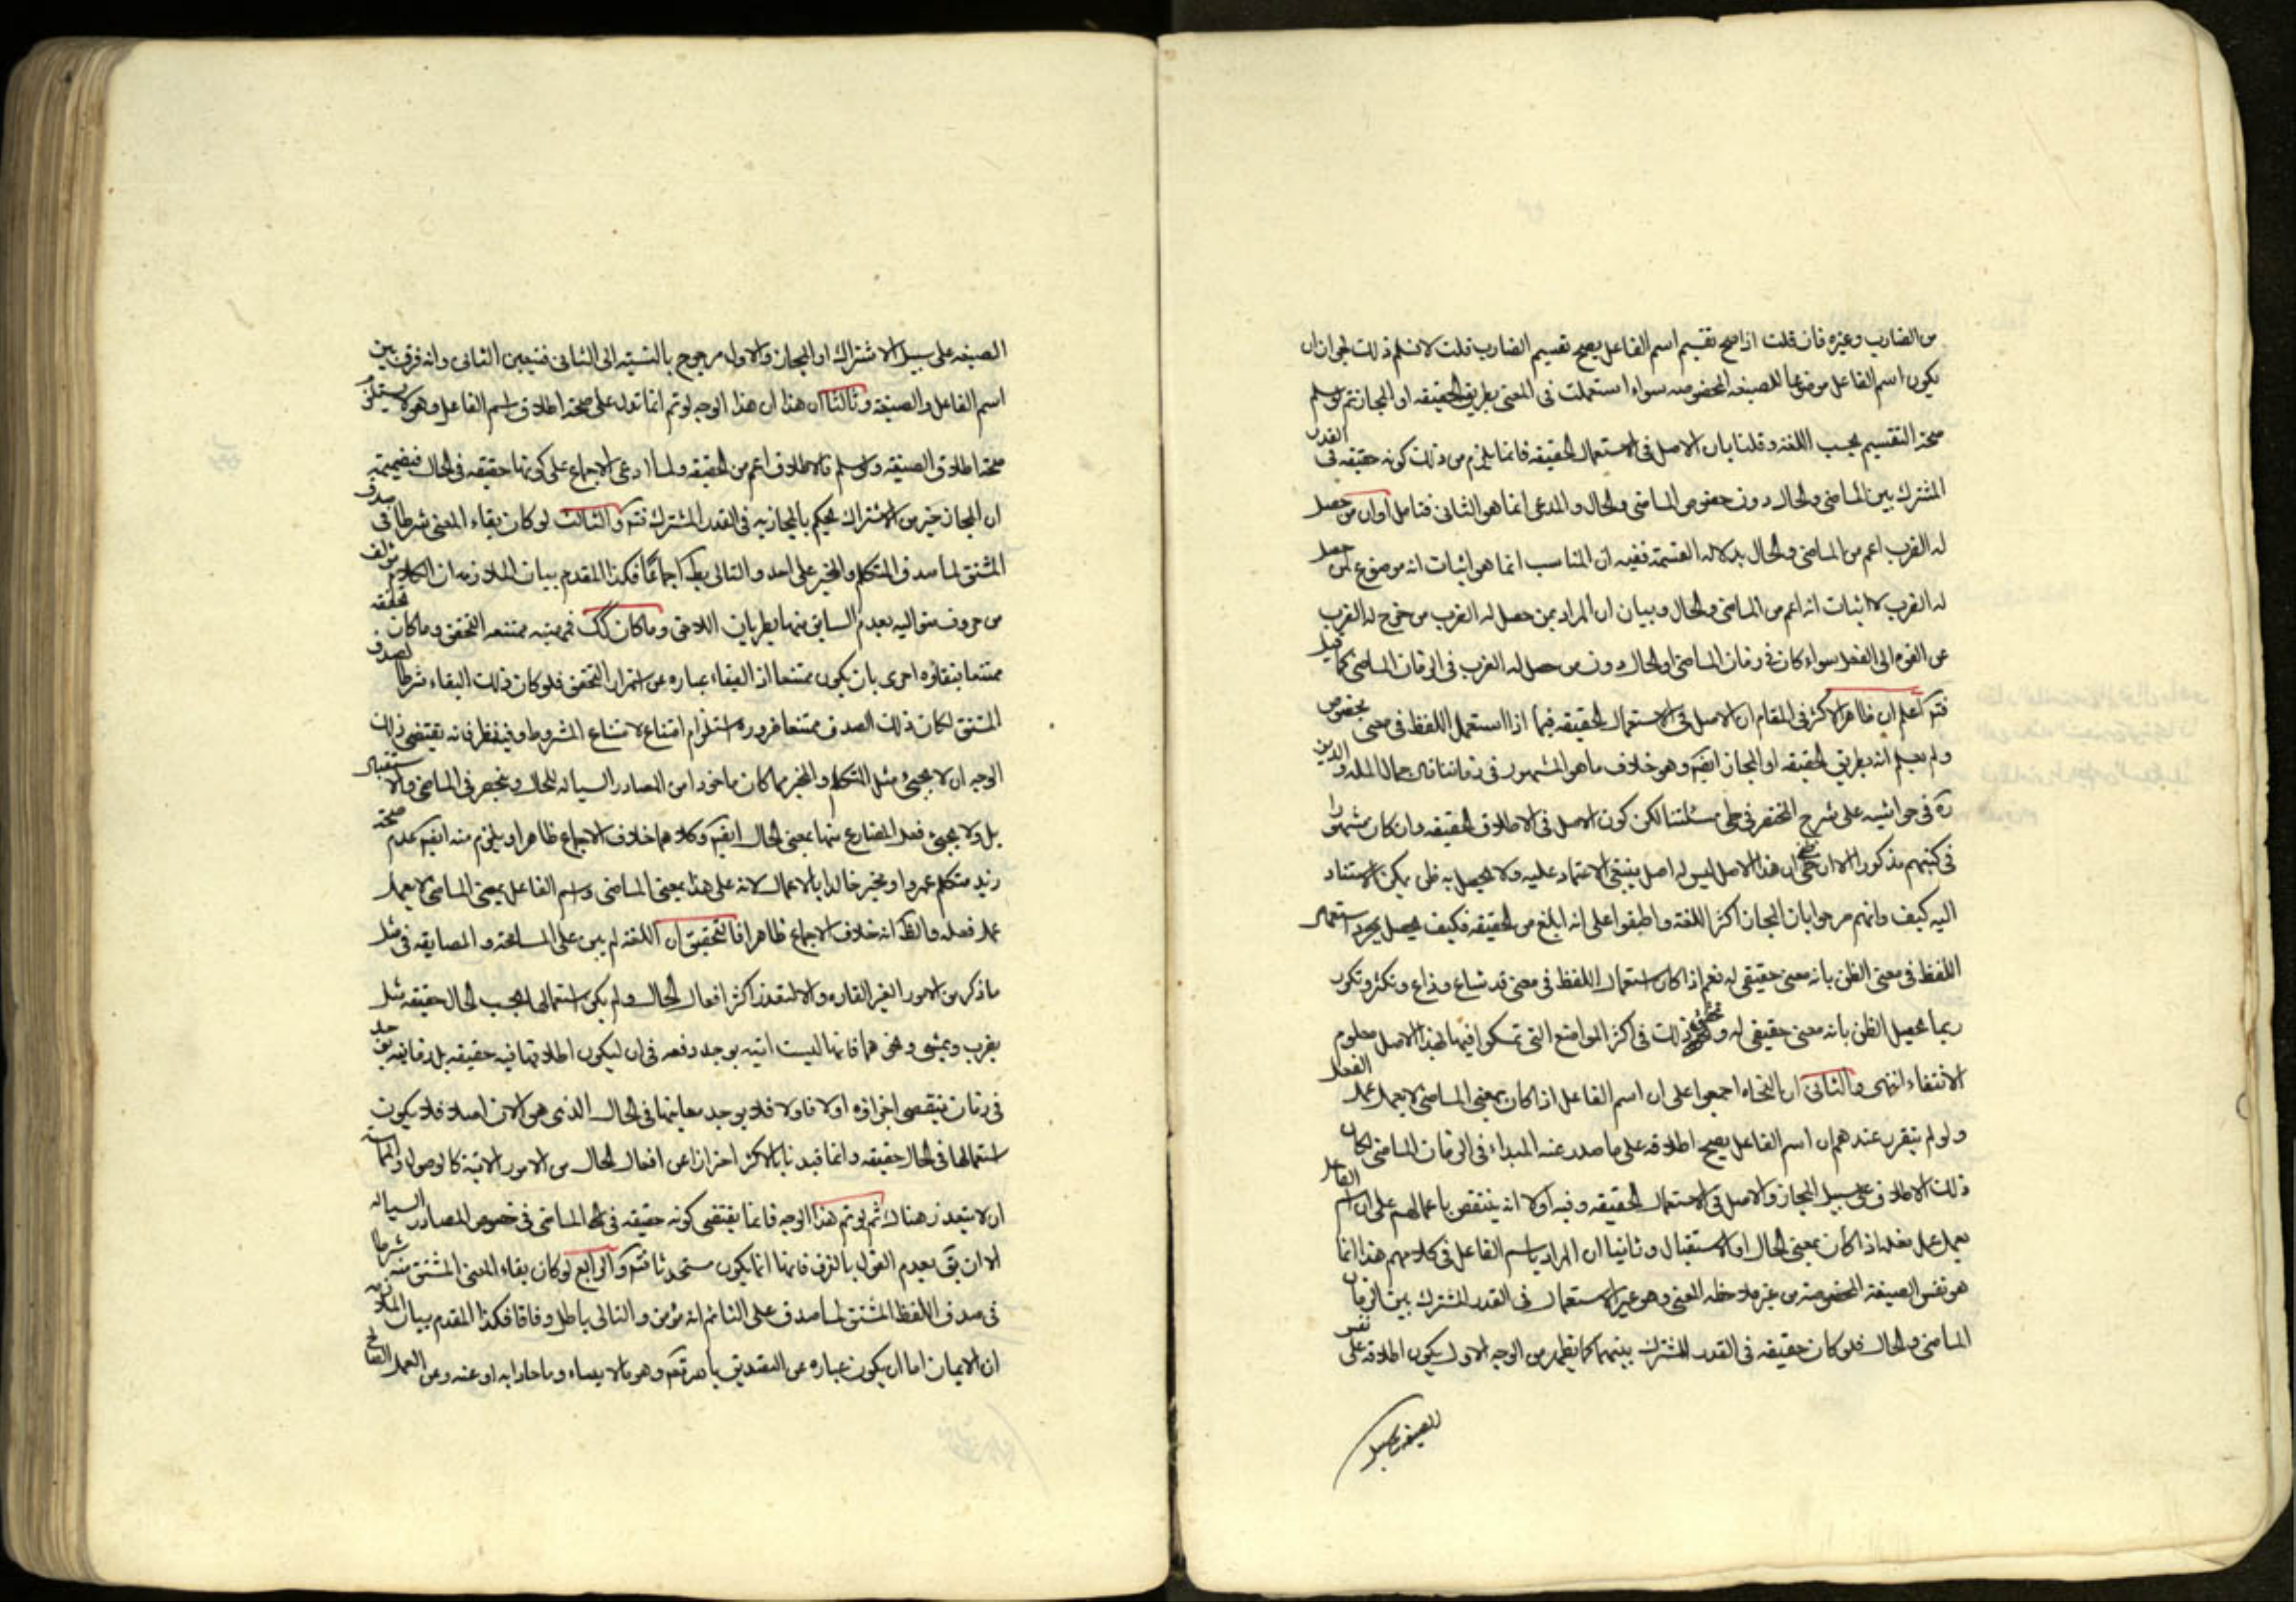 من الضارب وغيره فان قلت اذا صح تقسيم اسم الفاعل يصح تقسيم الضارب قلت لا نسلم ذلك لجواز ان
يكون اسم الفاعل موضوعا للصيغه المخصوصه سواء استعملت فى المعنى بطريق الحقيقه او المجاز ثم لو سلم
صحة التقسيم بحسب اللغة وقلنا بان الاصل فى الاستعمال الحقيقه فانما يلزم من ذلك كونه حقيقه فى القدر
المشترك بين الماضى والحال دون خصوص الماضى والحال والمدعى انما هو الثانى فتامل او ان من حصل
له الضرب اعم من الماضى والحال بدلاله القسمة ففيه ان المناسب انما هو اثبات انه موضوع لمن حصل
له الضرب لا اثبات انه اعم من الماضى والحال وبيان ان المراد بمن حصل له الضرب من خرج له الضرب
عن القوه الى الفعل سواء كان فى زمان الماضى او الحال دون من حصل له الضرب فى الزمان الماضى كما قيل
فتم اعلم ان ظاهر الاكثر فى المقام ان الاصل فى الاستعمال الحقيقه فيما اذا استعمل اللفظ فى معنى بخصوص
ولم يعلم انه بطريق الحقيقه او المجاز ايضا وهو خلاف ما هو المشهور فى زماننا قال جمال المله والدين
ره فى حواشيه على شرح المختصر فى طى مسئلتنا لكن كون الاصل فى الاطلاق الحقيقه وان كان مشهورا
فى كتبهم مذكورا الا ان الحق ان هذا الاصل ليس له اصل ينبغى الاعتماد عليه ولا يحصل به ظن يمكن الاستناد
اليه كيف وانهم صرحوا بان المجاز اكثر اللغة واطبقوا على انه ابلغ من الحقيقه فكيف يحصل بمجرد استعمال
اللفظ فى معنى الظن بانه معنى حقيقى له نعم اذا كان استعمال اللفظ فى معنى قد شاع وذاع وتكثر وتكرر
ربما يحصل الظن بانه معنى حقيقى له وتحقق ذلك فى اكثر المواضع التى تمسكوا فيها بهذا الاصل معلوم
الانتفاء انتهى والثانى ان النحاه اجمعوا على ان اسم الفاعل اذا كان بمعنى الماضى لا يعمل عمل الفعل
ولو لم يتقرر عندهم ان اسم الفاعل يصح اطلاقه على ما صدر عنه المبداء فى الزمان الماضى لكان
ذلك الاطلاق على سبيل المجاز والاصل فى الاستعمال الحقيقه وفيه اولا انه ينتقض باعمالهم على ان اسم الفاعل
يعمل عمل فعله اذا كان بمعنى الحال او الاستقبال وثانيا ان المراد باسم الفاعل فى كلامهم هذا انما
هو نفس الصيغة المخصوصة من غير ملاحظه المعنى وهو غير الاستعمال فى القدر المشترك بين الزمان
الماضى والحال فلو كان حقيقه فى القدر المشترك بينهما كما يظهر من الوجه الاول يكون اطلاقه على نفس
الصيغه على سبيل
الصيغه على سبيل الاشتراك او المجاز والاول مرجوح بالنسبه الى الثانى فتيعين الثانى وانه فرق بين
اسم الفاعل والصيغة وثالثا ان هذا الوجه لو تم انما تدل على صحة اطلاق اسم الفاعل وهو لا يستلزم
صحة اطلاق الصيغه ولو سلم فالاطلاق اعم من الحقيقه ولما ادعى الاجماع على كونها حقيقه فى الحال فبضميمة
ان المجاز خير من الاشتراك يحكم بالمجازيه فى القدر المشترك فتم والثالث لو كان بقاء المعنى شرطا فى صدق
المشتق لما صدق المتكلم والمخبر على احد والتالى بط اجماعا فكذا المقدم بيان الملازمه ان الكلام مؤلف
من حروف متواليه يعدم السابق منها بطريان اللاحق وما كان كك فهيئته ممتنعه التحقق وما كان تحققه
ممتنعا فبقاؤه احرى بان يكون ممتنعا اذ البقاء عباره عن استمرار التحقق فلو كان ذلك البقاء شرطا لصدق
المشتق لكان ذلك الصدق ممتنعا ضروره استلزام امتناع الشرط امتناع المشروط وفيه نظر فانه يقتضى ذلك
الوجه ان لا يجئ مثل المتكلم والمخبر مما كان ماخوذا من المصادر السياله للحال وينحصر فى الماضى والاستقبال
بل ولا يجئ فعل المضارع منها بمعنى الحال ايضا وكلاهما خلاف الاجماع ظاهرا ويلزم منه ايضا عدم صحة
زيد متكلم عمروا ومخبر خالدا بالاعمال لانه على هذا بمعنى الماضى واسم الفاعل بمعنى الماضى لا يعمل
عمل فعله والظ انه خلاف الاجماع ظاهرا فالتحقيق ان اللغة لم يبن على المسامحة والمضايقه فى مثل
ما ذكر من الامور الغير القاره والا لتعذر اكثر افعال الحال ولم يكن استعمالها بحسب الحال حقيقه مثل
يضرب ويمشى ونحوهما فانها ليست انيه يوجد دفعه فى ان ليكون اطلاقها فيه حقيقه بل زمانيه يوجد
فى زمان ينقضى اجزاؤه اولا فاولا فلا يوجد معانيها فى الحال الذى هو الان اصلا فلا يكون
استعمالها فى الحال حقيقه وانما قيدنا بالاكثر احترازا عن افعال الحال من الامور الانية كالوصول والمماسه
ان لا يتعذر هناك ثم لو تم هذا الوجه فانما يقتضى كونه حقيقه فى الماضى فى خصوص المصادر السياله
الا ان يق بعدم القول بالفرق فانما يكون مستحدثا فتم والرابع لو كان بقاء المعنى المشتق منه شرطا
فى صدق اللفظ المشتق لما صدق على النائم انه مؤمن والتالى باطل وفاقا فكذا المقدم بيان الملازمه
ان الايمان اما ان يكون عباره عن التصديق وهو ما لا يساه وما حاذا به او عنه وعن العمل الصالح